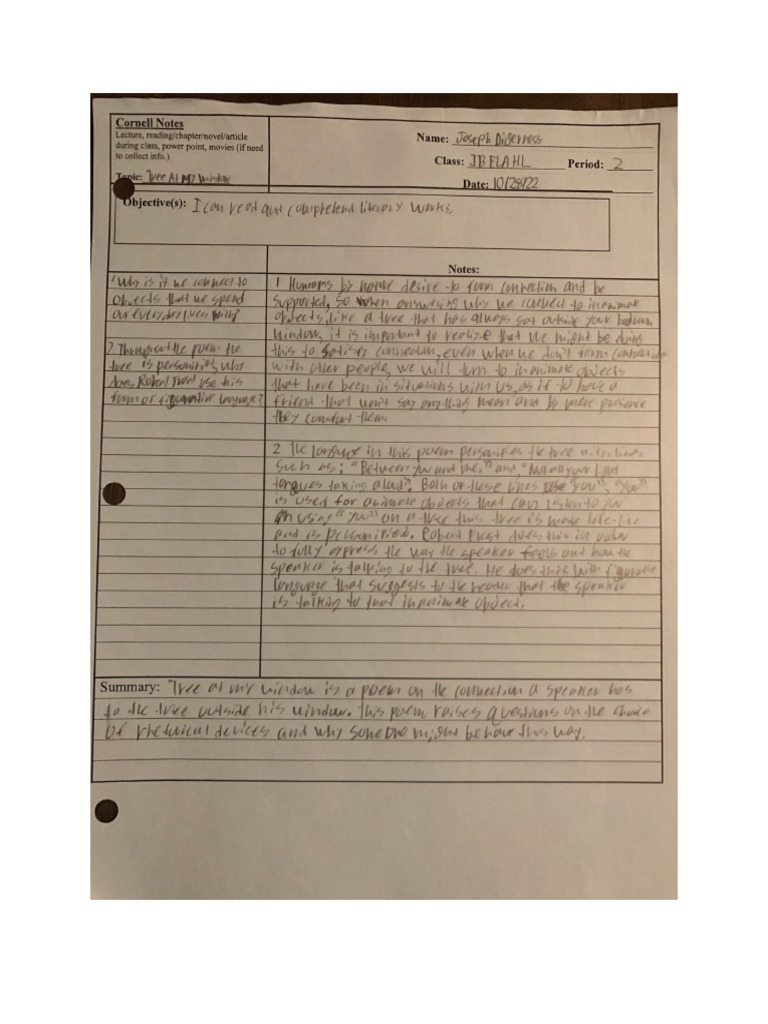 Cornell Notes
Lecture, reading/chapter/novel/article
during class, power point, movies (if need
to collect info.)
Topic: Tree At My Window
Name: Joseph
Class: Period: 2
Date: 10/28/22
Objective(s): I can read and comprehend literacy works.
Notes:
1 Why is it we connect to
objects that we spend
our everyday lives with?
2 Throughout the poem the
tree is personified, why
does Robert Frost use this
form of figurative language?
1 Humans by nature desire to form connection and be
supported, so when answering why we connect to inanimate
objects, like a tree that has always sat outside your bedroom
window, it is important to realize that we might be doing
this to satisfy connection, even when we don't form connection
with other people, we will turn to inanimate objects
that have been in situations with us, as if to have a
friend that won't say anything mean and by mere presence
they comfort them.
2 The language in this poem personifies the tree with lines
such as: "Between you and me." and "Not all your light
tongues talking aloud". Both of these lines use "you", "you"
is used for animate objects that can listen to you
using "you" on a tree this tree is made life-like
and is personified. Robert Frost does this in order
to fully express the way the speaker feels and how the
speaker is talking to the tree. He does this with figurative
language that suggests to the reader that the speaker
is talking to that inanimate object.
Summary: Tree at my window is a poem on the connection a speaker has
to the tree outside his window. This poem raises questions on the choice
of rhetorical devices and why someone might behave this way.